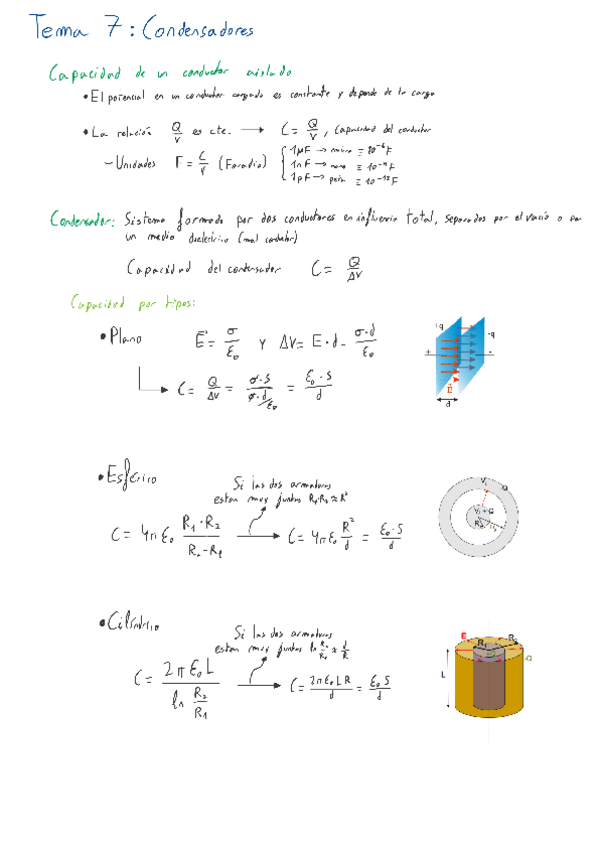 Tema 7: Condensadores
Capacidad de un conductor aislado
• El potencial en un conductor cargado es constante y depende de la carga
• La relación Q/V es cte. → C = Q/V, capacidad del conductor
– Unidades F = C/V (Faradio) { 1μF → micro = 10⁻⁶F
1nF → nano = 10⁻⁹F
1pF → pico = 10⁻¹²F
Condensador: Sistema formado por dos conductores en influencia total, separados por el vacío o por
un medio dieléctrico (mal conductor)
Capacidad del condensador C = Q/ΔV
Capacidad por tipos:
• Plano E⃗ = σ/ε₀ y ΔV = E·d = σ·d/ε₀
C = Q/ΔV = σ·S/(σ·d/ε₀) = ε₀·S/d
+q -q
+ -
E
d
• Esférico
Si las dos armaduras
estan muy juntas R₁·R₂ ≈ R²
C = 4π ε₀ R₁·R₂/(R₂-R₁) → C = 4π ε₀ R²/d = ε₀·S/d
• Cilíndrico
Si las dos armaduras
estan muy juntas ln R₂/R₁ ≈ d/R
C = 2π ε₀ L / ln R₂/R₁ → C = 2π ε₀ L R/d = ε₀ S/d
E R₁ R₂
L